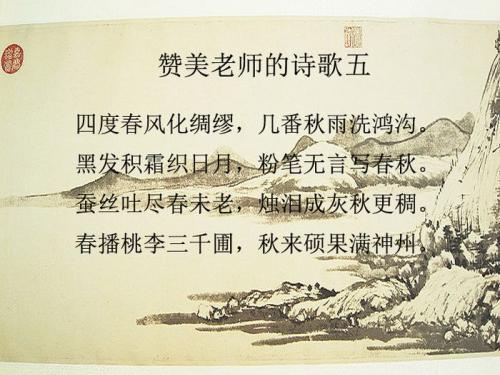 赞美老师的诗歌五
四度春风化绸缪，几番秋雨洗鸿沟。
黑发积霜织日月，粉笔无言写春秋。
蚕丝吐尽春未老，烛泪成灰秋更稠。
春播桃李三千圃，秋来硕果满神州。